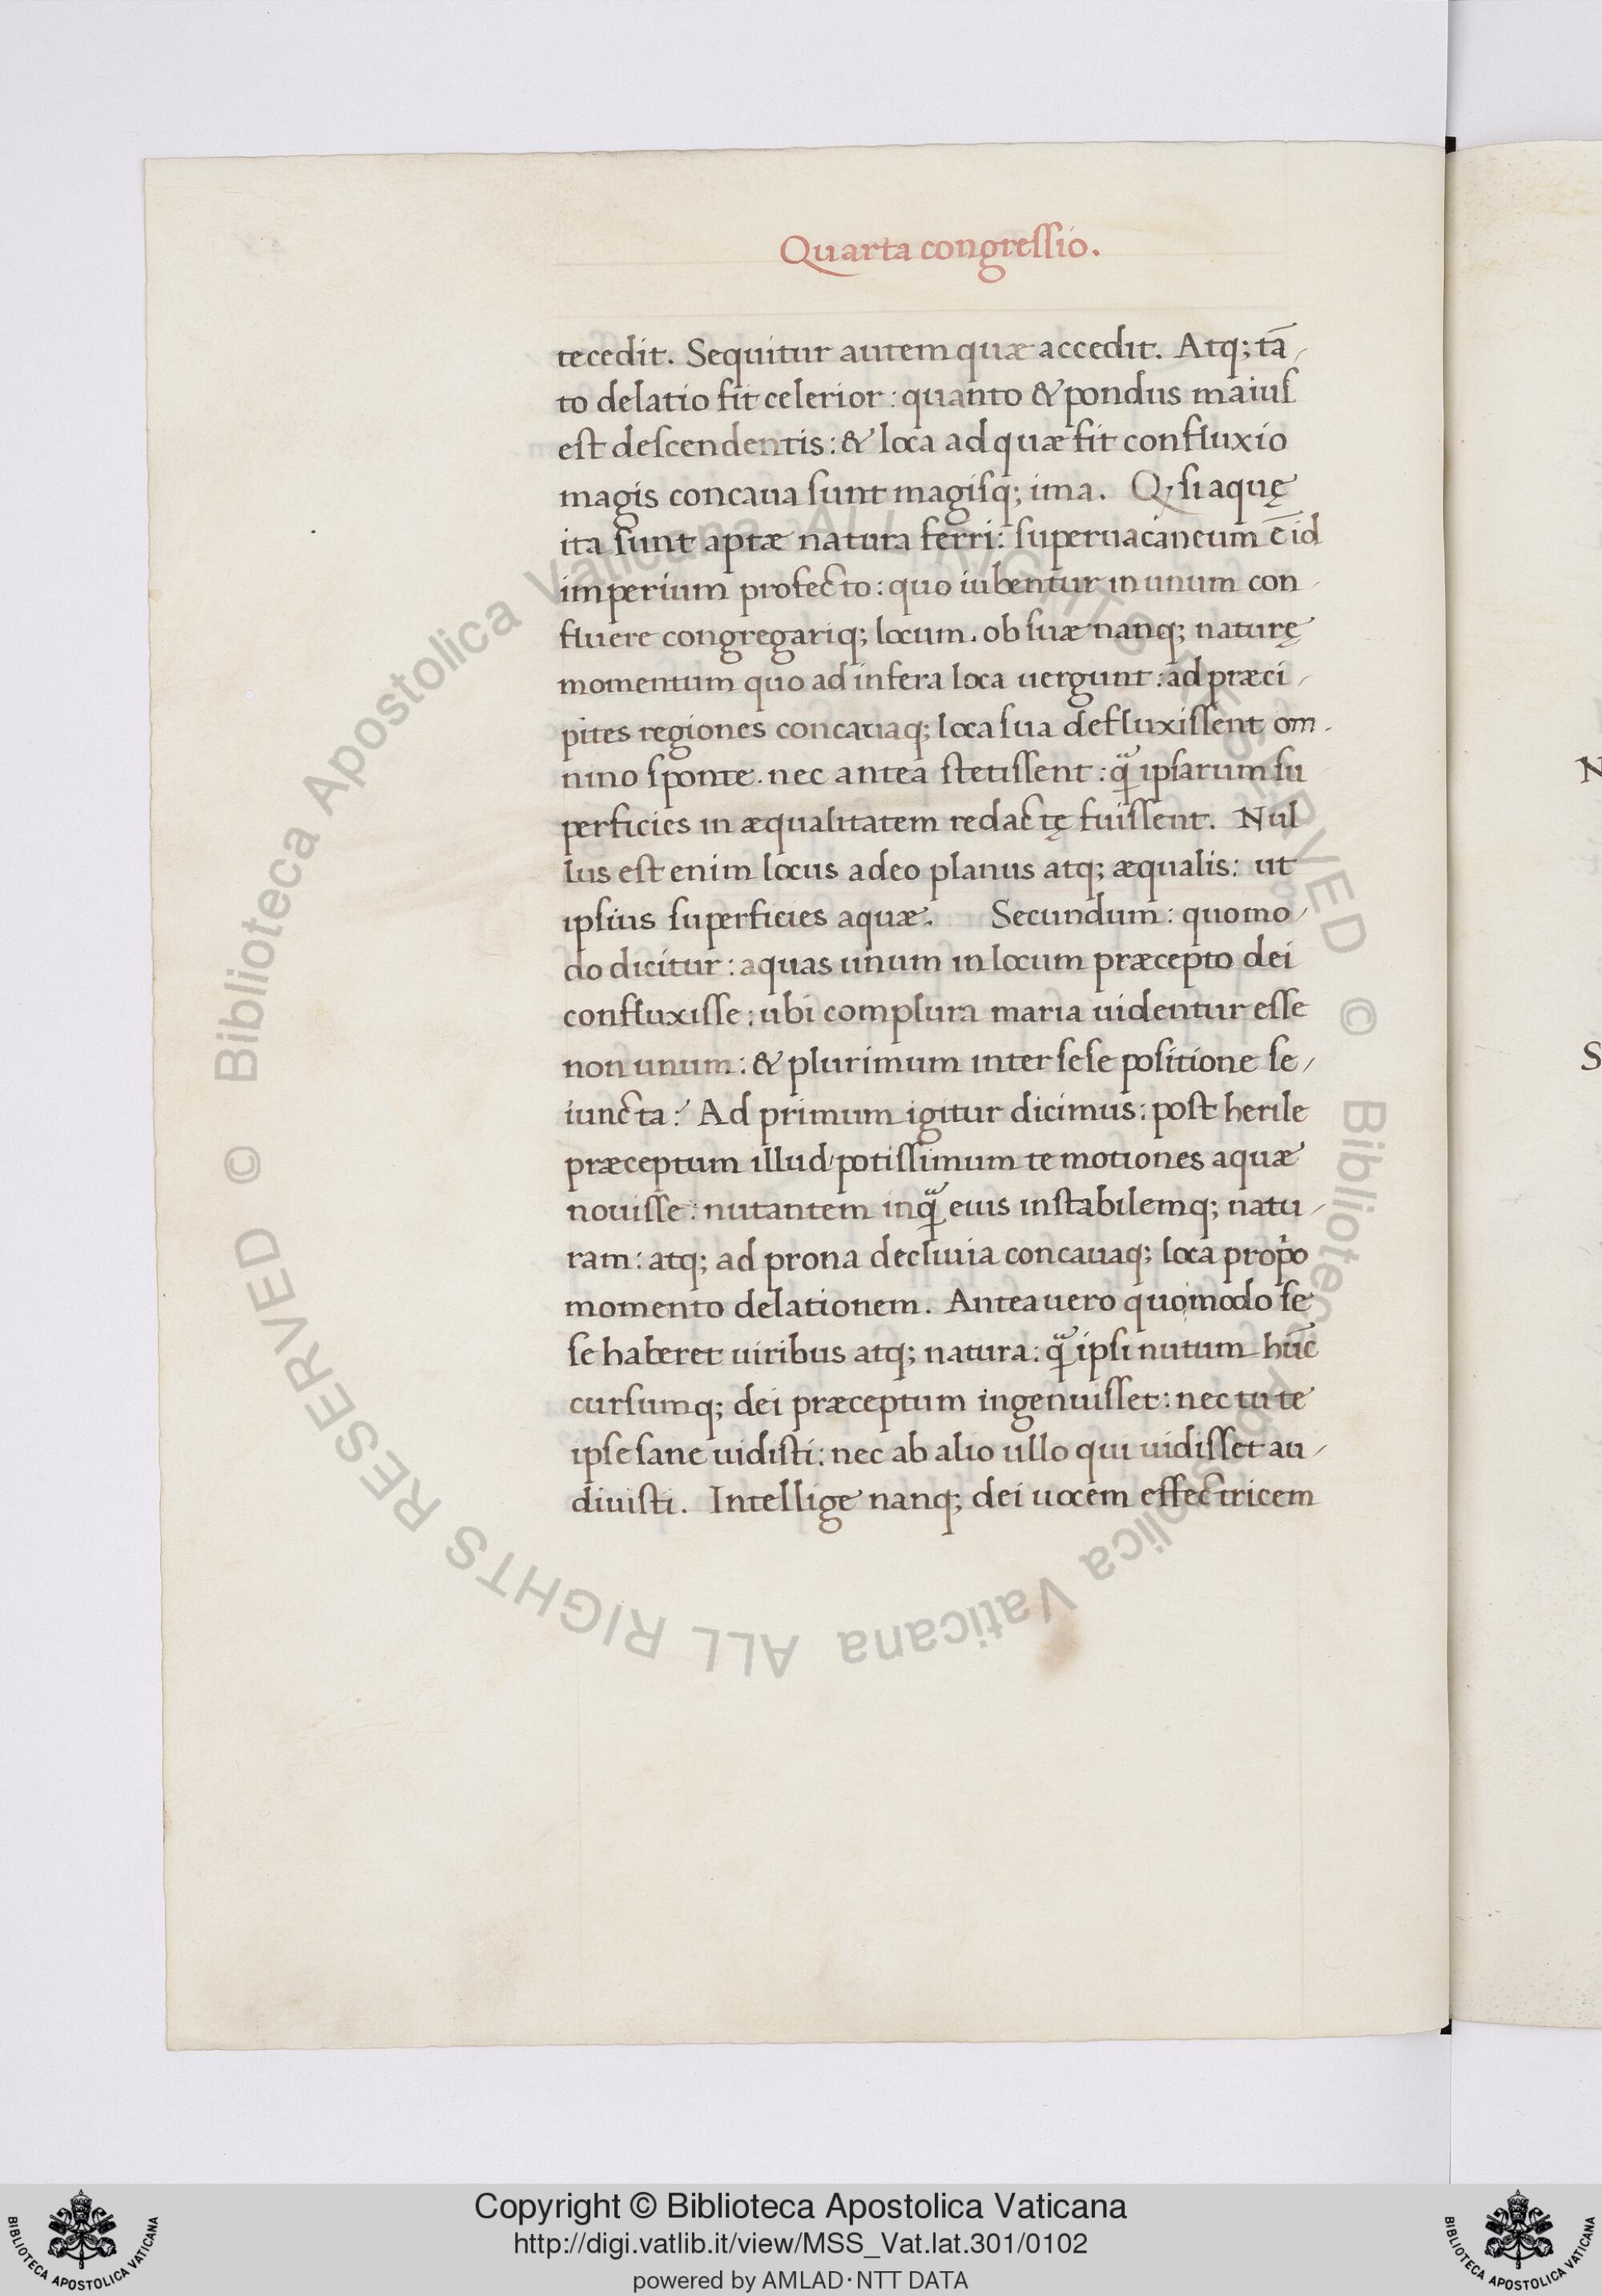 Quarta congreſſio.
tecedit. Sequitur autem quæ accedit. Atq; tā-
to delatio fit celerior: quanto & pondus maiuſ
eſt deſcendentis: & loca ad quæ fit confluxio
magis concaua ſunt magiſq; ima. Q, ſi aquę
ita ſunt aptæ natura ferri: ſuperuacaneum ē id
imperium profecto: quo iubentur in unum con-
fluere congregariq; locum. ob ſuæ nanq; naturę
momentum quo ad infera loca uergunt: ad præci-
pites regiones concauaq; loca ſua defluxiſſent om-
nino ſponte. nec antea ſtetiſſent: q̃ ipſarum ſu
perficies in æqualitatem redactę fuiſſent. Nul
lus eſt enim locus adeo planus atq; æqualis: ut
ipſius ſuperficies aquæ. Secundum: quomo-
do dicitur: aquas unum in locum præcepto dei
confluxiſſe: ubi complura maria uidentur eſſe
non unum: & plurimum inter ſeſe poſitione ſe-
iuncta? Ad primum igitur dicimus: poſt herile
præceptum illud potiſſimum te motiones aquæ
nouiſſe: nutantem inq̃ eius inſtabilemq; natu-
ram: atq; ad prona decliuia concauaq; loca prop̄o
momento delationem. Antea uero quomodo ſe
ſe haberet uiribus atq; natura: q̃ ipſi nutum hūc
curſumq; dei præceptum ingenuiſſet: nec tu te
ipſe ſane uidiſti: nec ab alio ullo qui uidiſſet au-
diuiſti. Intellige nanq; dei uocem effectricem
N
S
© Biblioteca Apostolica Vaticana ALL RIGHTS RESERVED © Biblioteca Apostolica Vaticana ALL RIGHTS RESERVED
BIBLIOTECA APOSTOLICA VATICANA
Copyright © Biblioteca Apostolica Vaticana
http://digi.vatlib.it/view/MSS_Vat.lat.301/0102
powered by AMLAD·NTT DATA
BIBLIOTECA APOSTOLICA VATICANA